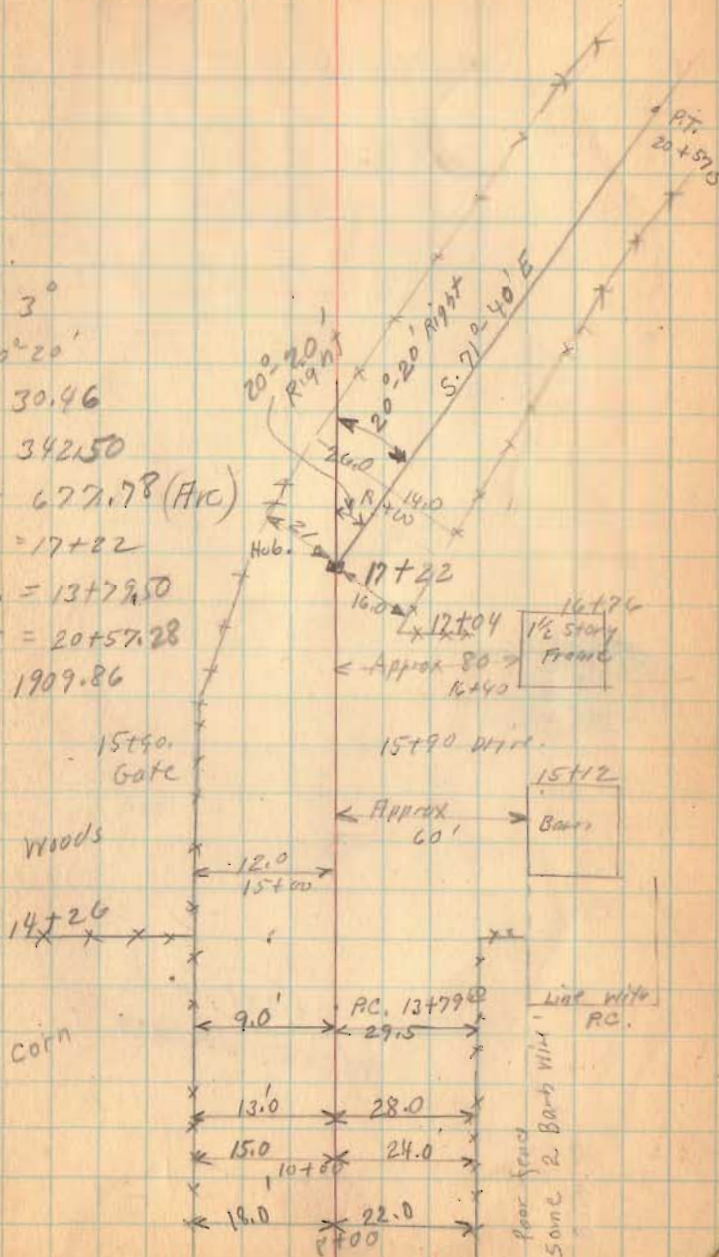 P.T.
20+57.5
3°
0°-20'
30.46
342.50
677.78 (Arc)
=17+22
= 13+79.50
= 20+57.28
1909.86
20°-20'
Right
20°-20' Right
S. 71°-40' E
26.0
14.0
21
Hub.
17+22
16.0
17+04
16+76
1½ Story
Frame
Approx 80
16+40
15+90.
Gate
15+90 Drive.
15+12
Barn
Approx
60'
Woods
12.0
15+00
14+26
Corn
9.0'
P.C. 13+79.50
29.5
Line with
P.C.
13.0
28.0
15.0
24.0
10+00
18.0
22.0
Poor fence
Some 2 Barb Wire